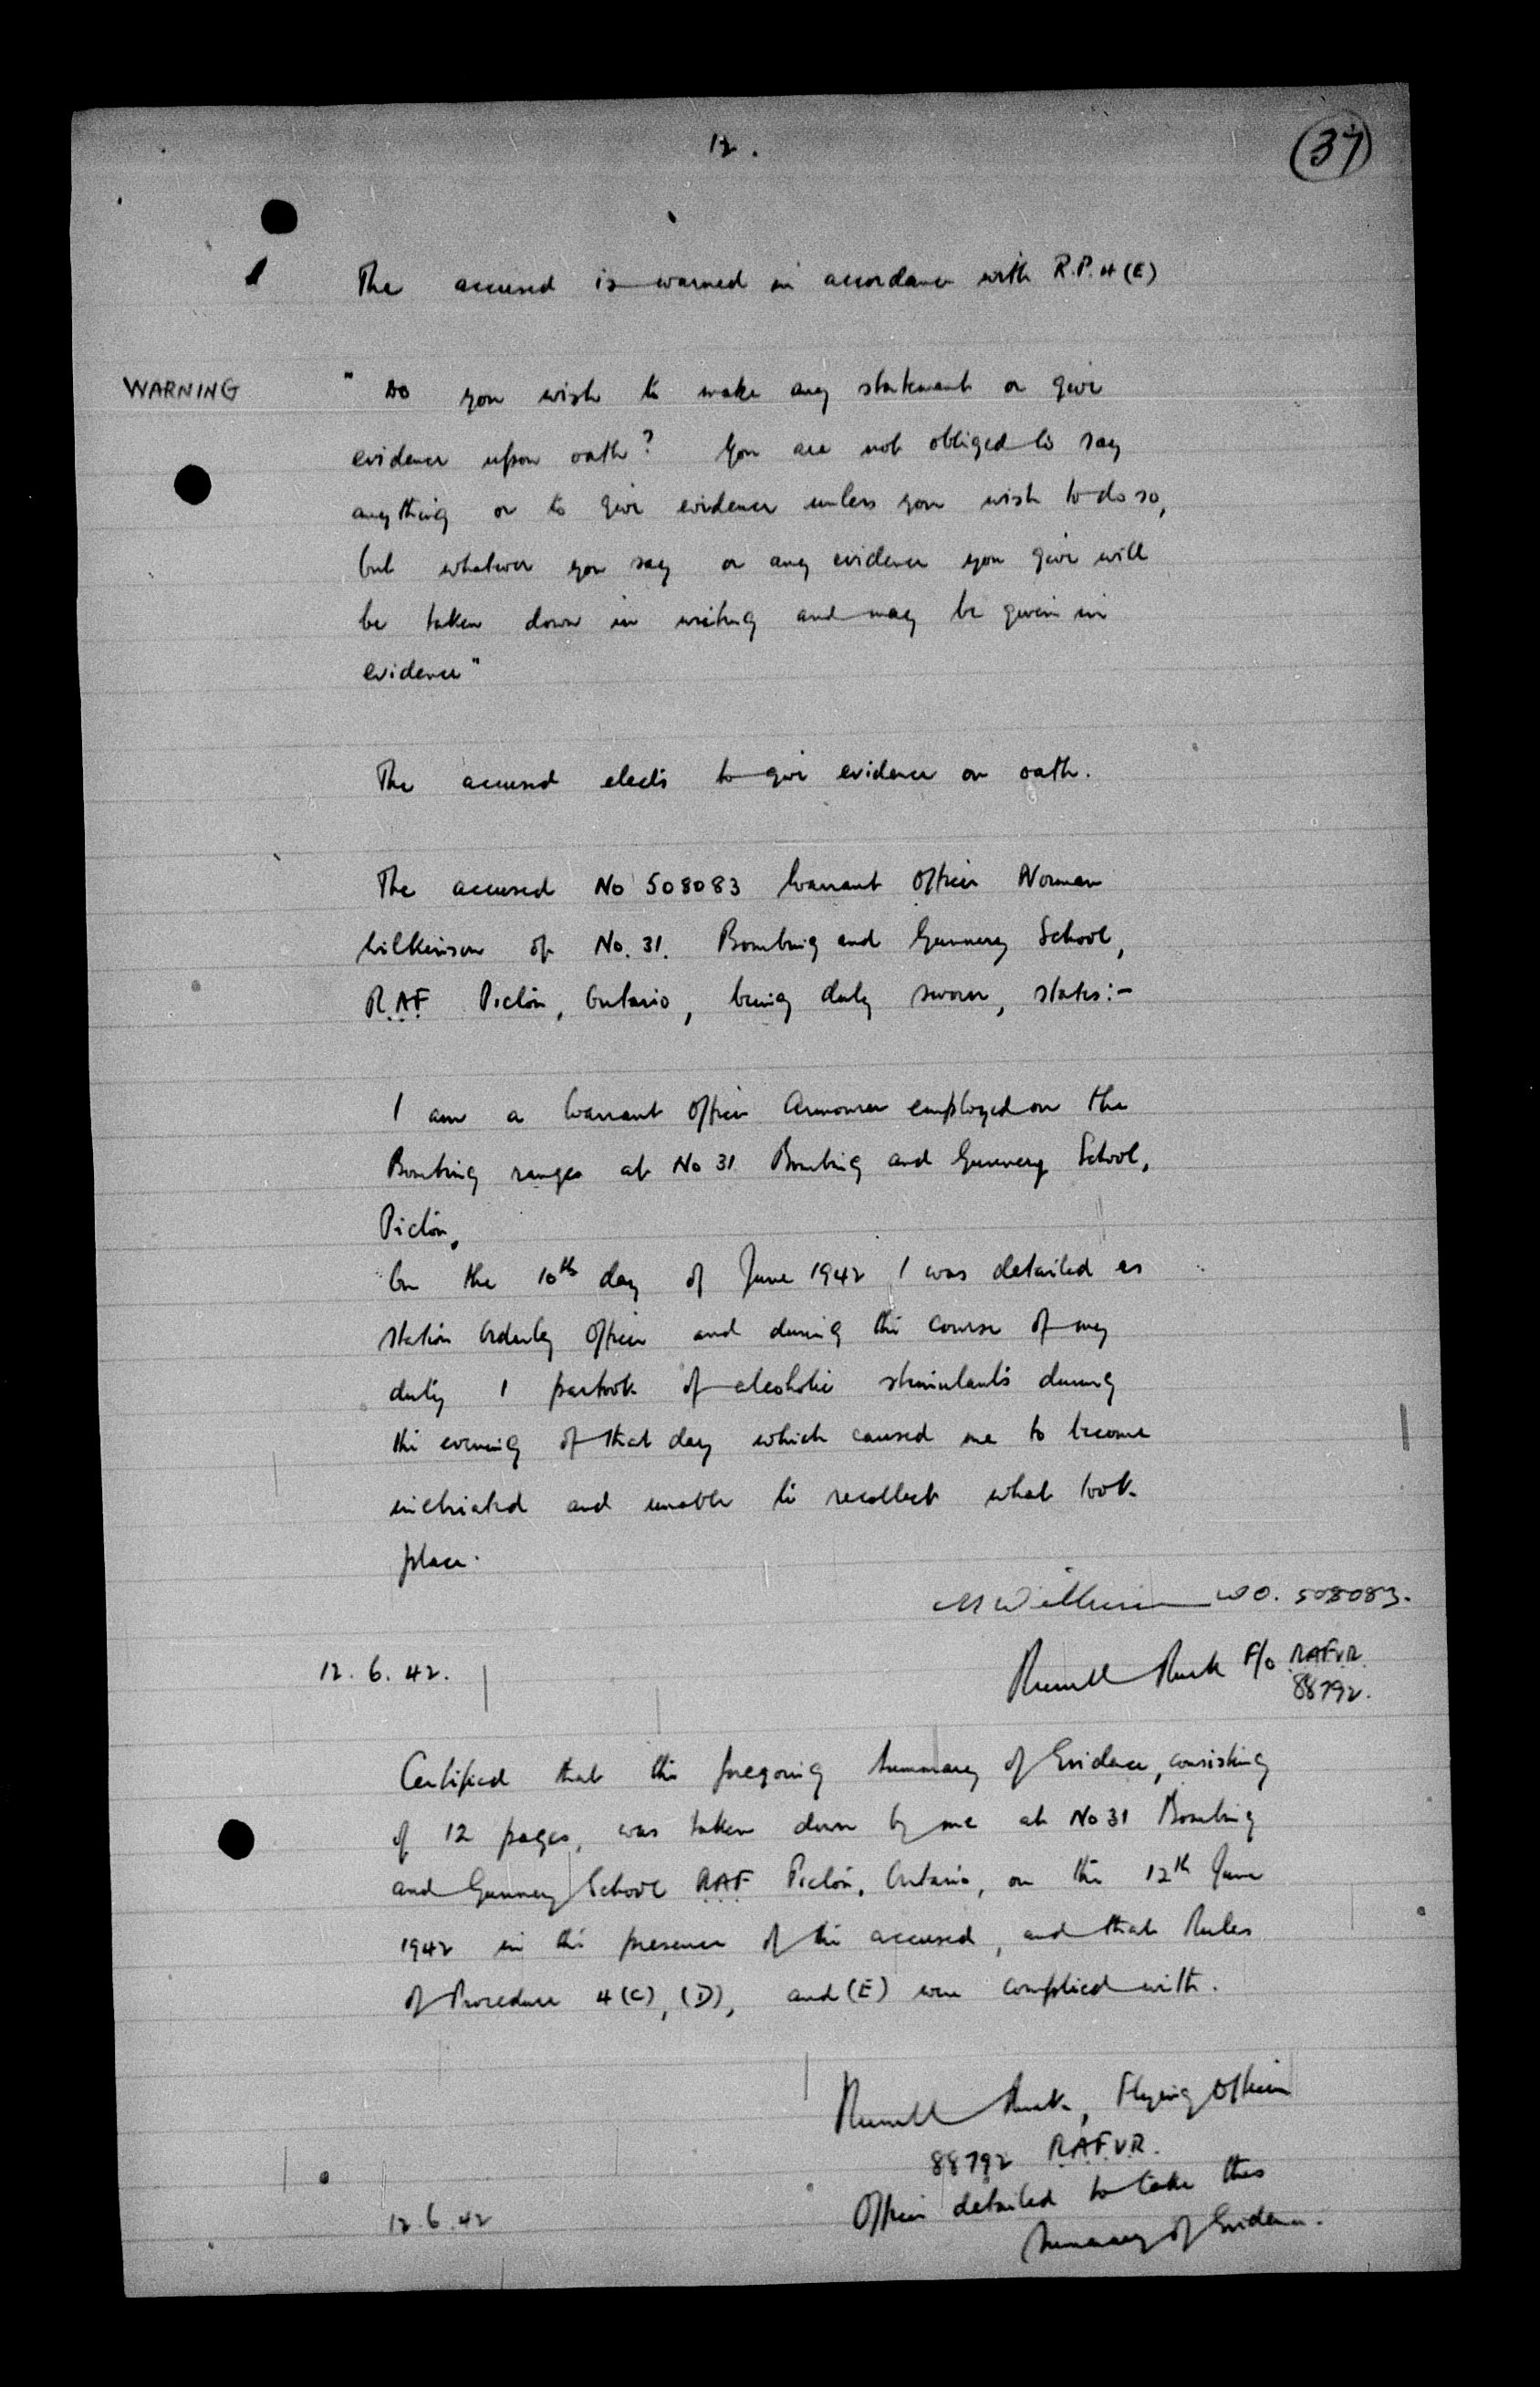 12.
37
The accused is warned in accordance with R.P.4(E)
WARNING
" Do you wish to make any statement or give
evidence upon oath? You are not obliged to say
anything or to give evidence unless you wish to do so,
but whatever you say or any evidence you give will
be taken down in writing and may be given in
evidence"
The accused elects to give evidence on oath.
The accused No 508083 Warrant Officer Norman
Wilkinson of No. 31. Bombing and Gunnery School,
R.A.F. Picton, Ontario, being duly sworn, states:-
I am a Warrant Officer Armourer employed on the
Bombing ranges at No 31 Bombing and Gunnery School,
Picton.
On the 10th day of June 1942 I was detailed as
Station Orderly Officer and during the course of my
duty I partook of alcoholic stimulants during
the evening of that day which caused me to become
inebriated and unable to recollect what took
place.
N Wilkinson W O. 508083.
12. 6. 42.
Russell F/o RAFVR.
88792.
Certified that the foregoing Summary of Evidence, consisting
of 12 pages, was taken down by me at No 31 Bombing
and Gunnery School RAF Picton, Ontario, on the 12th June
1942 in the presence of the accused, and that Rules
of Procedure 4(C), (D), and (E) were complied with.
Russell , Flying Officer
88792 R.A.F.V.R.
Officer detailed to take this
Summary of Evidence.
12.6.42